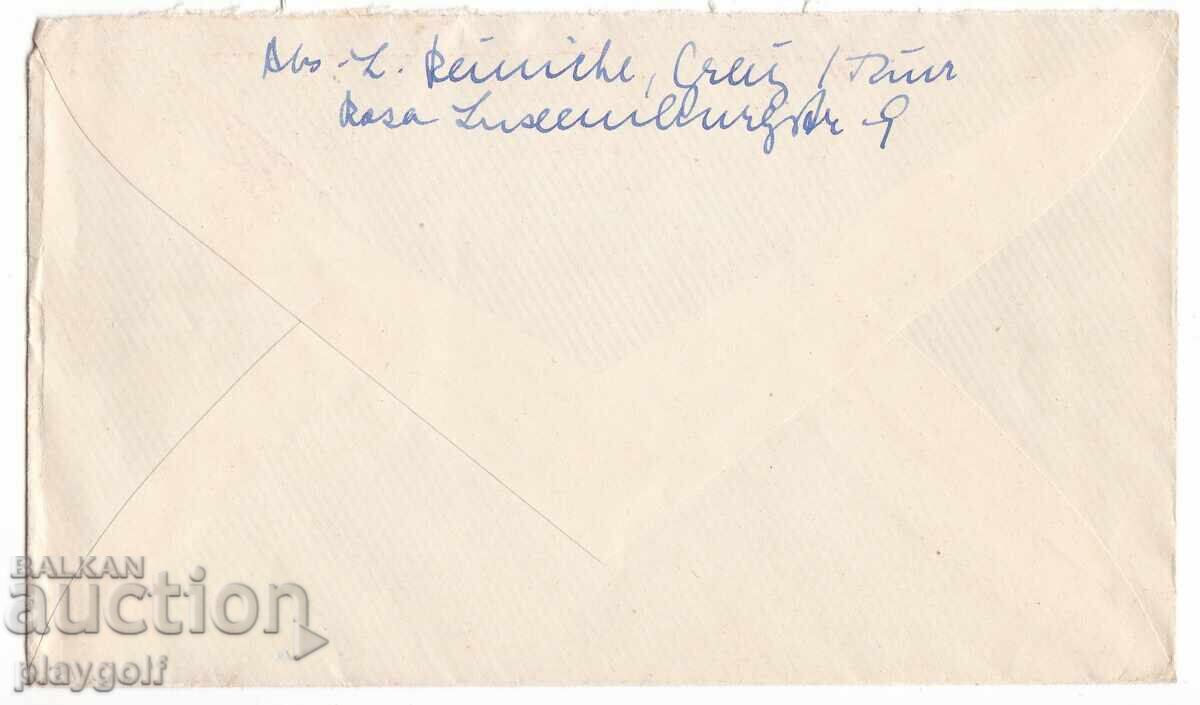 Abs. L. Reiniche, Greiz / Thür
Rosa Luxemburgstr 9
BALKAN
auction
playgolf